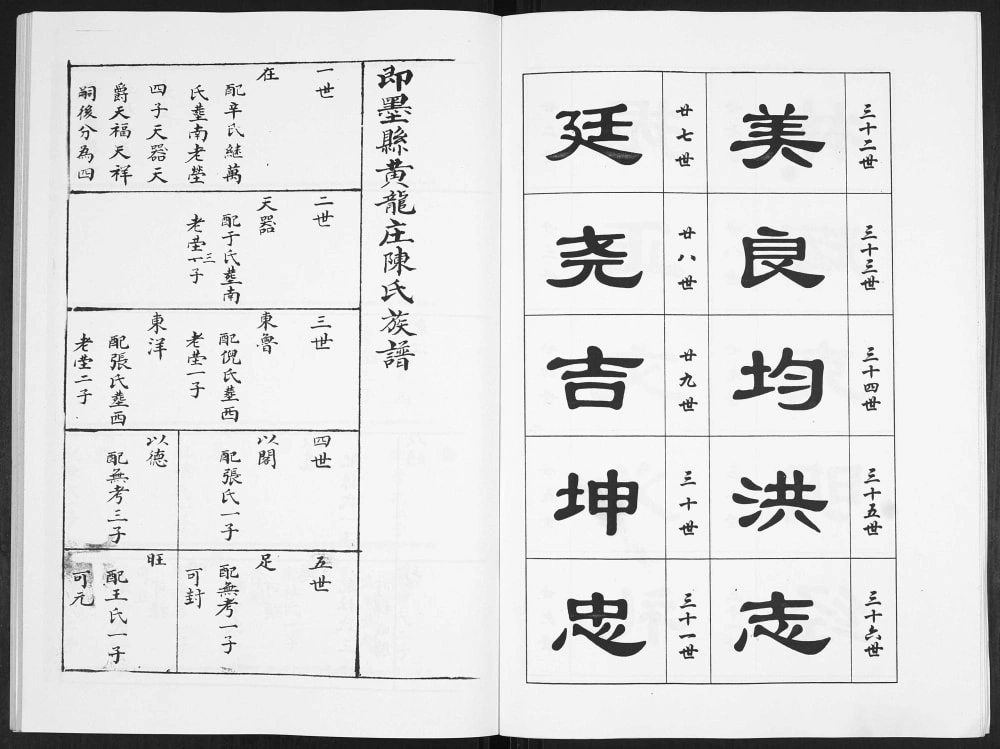 三十二世
美
三十三世
良
三十四世
均
三十五世
洪
三十六世
志
廿七世
廷
廿八世
尧
廿九世
吉
三十世
坤
三十一世
忠
即墨縣黄龍庄陳氏族譜
一世
在
配辛氏継萬
氏塟南老塋
四子天器天
爵天福天祥
嗣後分為四
二世
天器
配于氏塟南
老塋一子
三
三世
東魯
配倪氏塟西
老塋一子
東洋
配張氏塟西
老塋二子
四世
以
配張氏一子
以德
配無考三子
五世
足
配無考一子
可封
旺
配王氏一子
可元